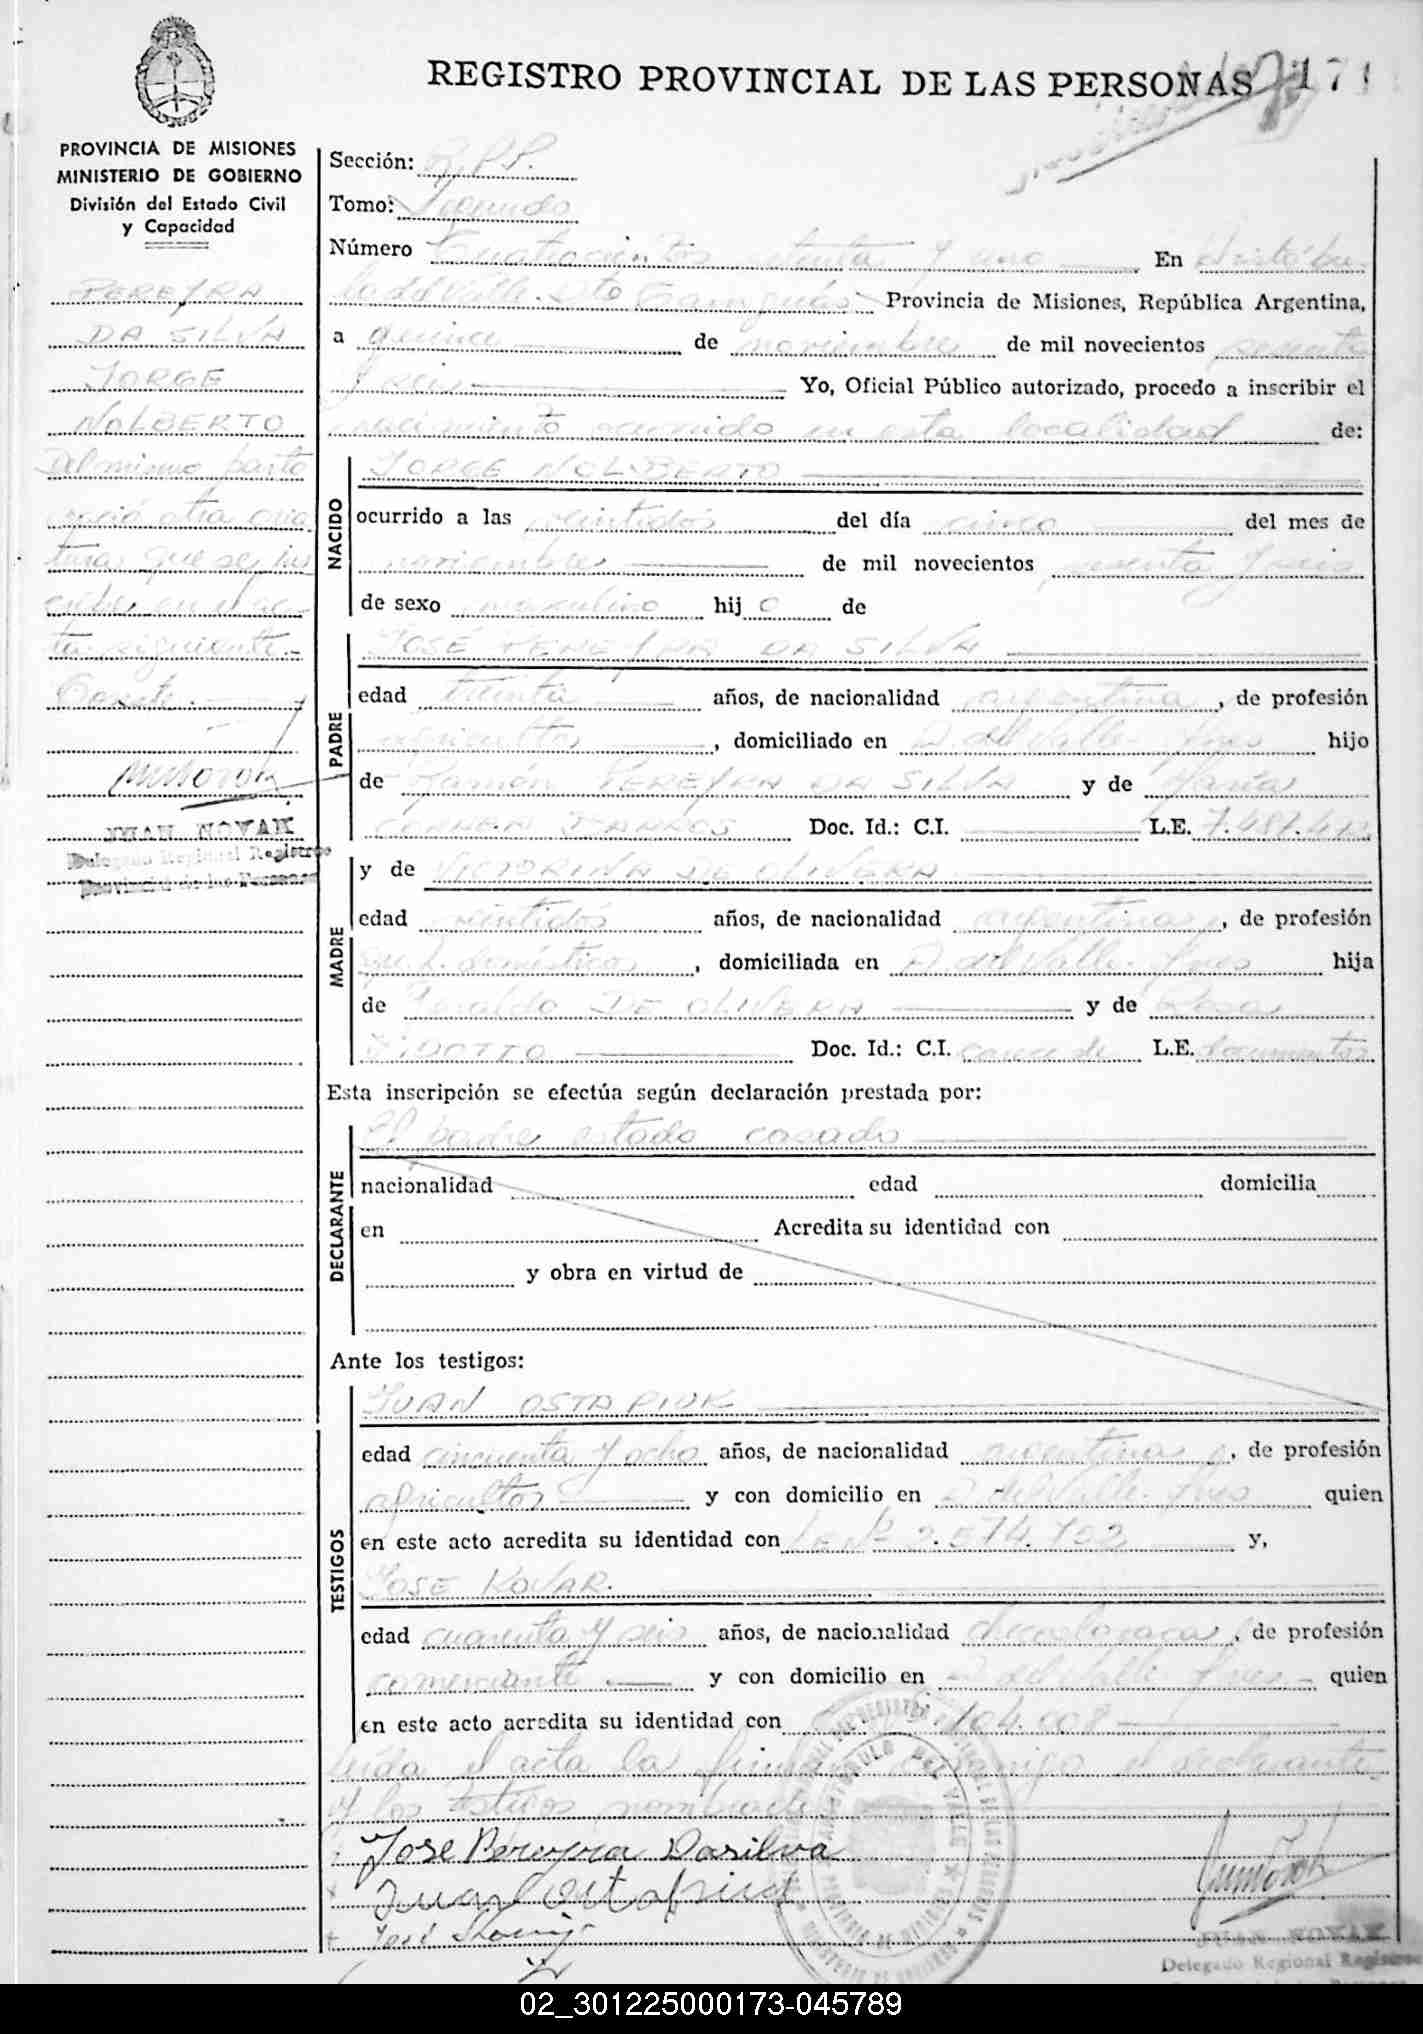 REGISTRO PROVINCIAL DE LAS PERSONAS 171
PROVINCIA DE MISIONES
MINISTERIO DE GOBIERNO
División del Estado Civil
y Capacidad
PEREYRA
DA SILVA
JORGE
NOLBERTO
Del mismo parto
nació otra cria
tura que se ins
cribe en el ac
ta siguiente.-
Conste.
JUAN NOVAK
Delegado Regional Registro
Provincial de las Personas
Sección: R.P.P.
Tomo: Segundo
Número Cuatrocientos setenta y uno En Aristóbu-
lo del Valle. Dto Cainguás Provincia de Misiones, República Argentina,
a quince de noviembre de mil novecientos sesenta
y seis Yo, Oficial Público autorizado, procedo a inscribir el
nacimiento ocurrido en esta localidad de:
NACIDO
JORGE NOLBERTO
ocurrido a las veintidós del día cinco del mes de
noviembre de mil novecientos sesenta y seis
de sexo masculino hijo de
PADRE
JOSÉ PEREYRA DA SILVA
edad treinta años, de nacionalidad argentina, de profesión
agricultor, domiciliado en A. del Valle. Mnes hijo
de Ramón PEREYRA DA SILVA y de María
Doc. Id.: C.I. L.E. 7.487.472
MADRE
y de VICTORINA DE OLIVERA
edad veintidós años, de nacionalidad argentina, de profesión
q. domésticos, domiciliada en A. del Valle. Mnes hija
de DE OLIVERA y de Rosa
Doc. Id.: C.I. carece de L.E. documentos
Esta inscripción se efectúa según declaración prestada por:
DECLARANTE
El padre estado casado
nacionalidad edad domicilia
en Acredita su identidad con
y obra en virtud de
Ante los testigos:
TESTIGOS
JUAN OSTAPIUK
edad cincuenta y ocho años, de nacionalidad argentina, de profesión
agricultor y con domicilio en A. del Valle. Mnes quien
en este acto acredita su identidad con LE Nº 3.574.752 y,
JOSE KOVAR.
edad cuarenta y seis años, de nacionalidad checoslovaca, de profesión
comerciante y con domicilio en A. del Valle Mnes quien
en este acto acredita su identidad con 104.008
Leída el acta la firman conmigo el declarante
y los testigos nombrados
Jose Pereyra Dasilva
Juan Ostapiuk
José
ARISTOBULO DEL VALLE
PROVINCIA DE MISIONES
JUAN NOVAK
Delegado Regional Registro
02_301225000173-045789